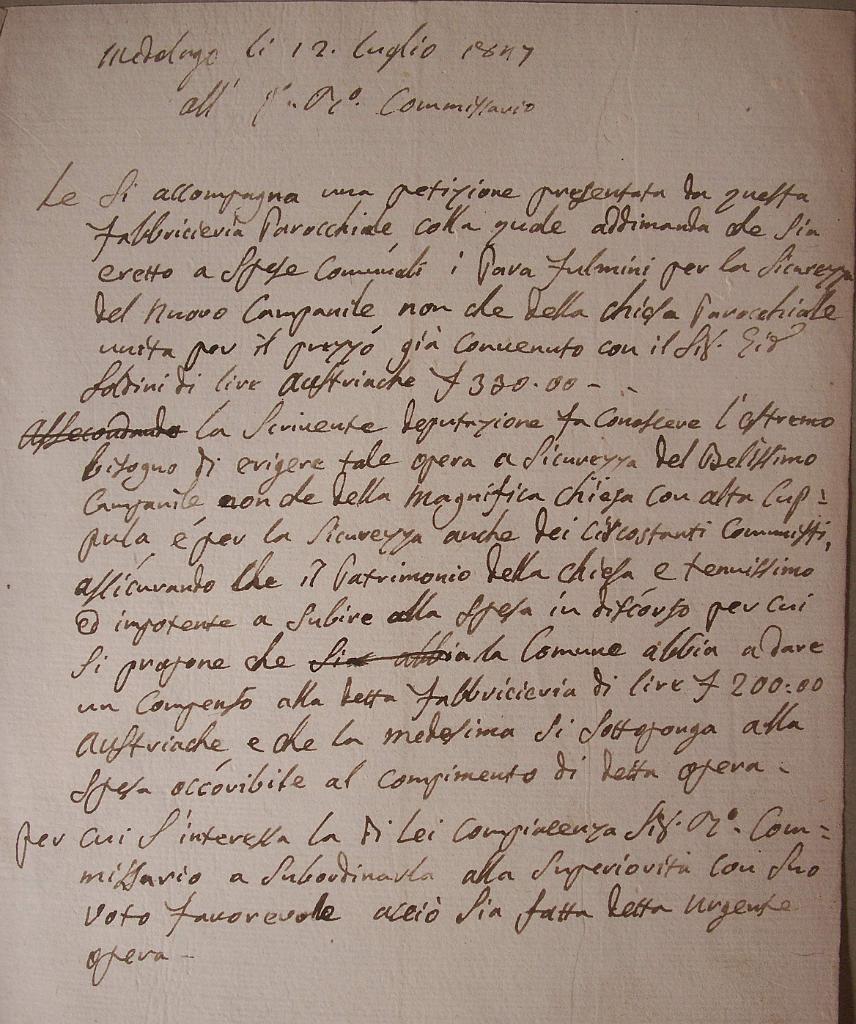 Medolago li 12. Luglio 1847
all' R.º Commissario
Le Si accompagna una petizione presentata da questa
Fabbricieria Parocchiale colla quale addimanda che Sia
eretto a Spese Comunali i Para fulmini per la Sicurezza
del Nuovo Campanile non che della chiesa Parocchiale
unita per il prezzo già Convenuto con il Sig.
Soldini di lire Austriache £ 330.00 -
Assecondando la Scrivente deputazione fa Conoscere l'estremo
bisogno di erigere tale opera a Sicurezza del Belissimo
Campanile non che della Magnifica chiesa con alta Cup=
pula é per la Sicurezza anche dei Circostanti Communisti,
assicurando che il Patrimonio della chiesa e tenuissimo
ed impotente a Subire alla Spesa in discorso per cui
Si propone che Sia abbia la Comune abbia a dare
un Compenso alla detta fabbricieria di lire £ 200:00
Austriache e che la medesima Si Sottoponga alla
Spesa occoribile al Compimento di detta opera -
per cui S'interessa la di Lei Compiacenza Sig. R.º Com=
missario a Subordinarla alla Superiorità con Suo
Voto favorevole acciò Sia fatta detta Urgente
opera -